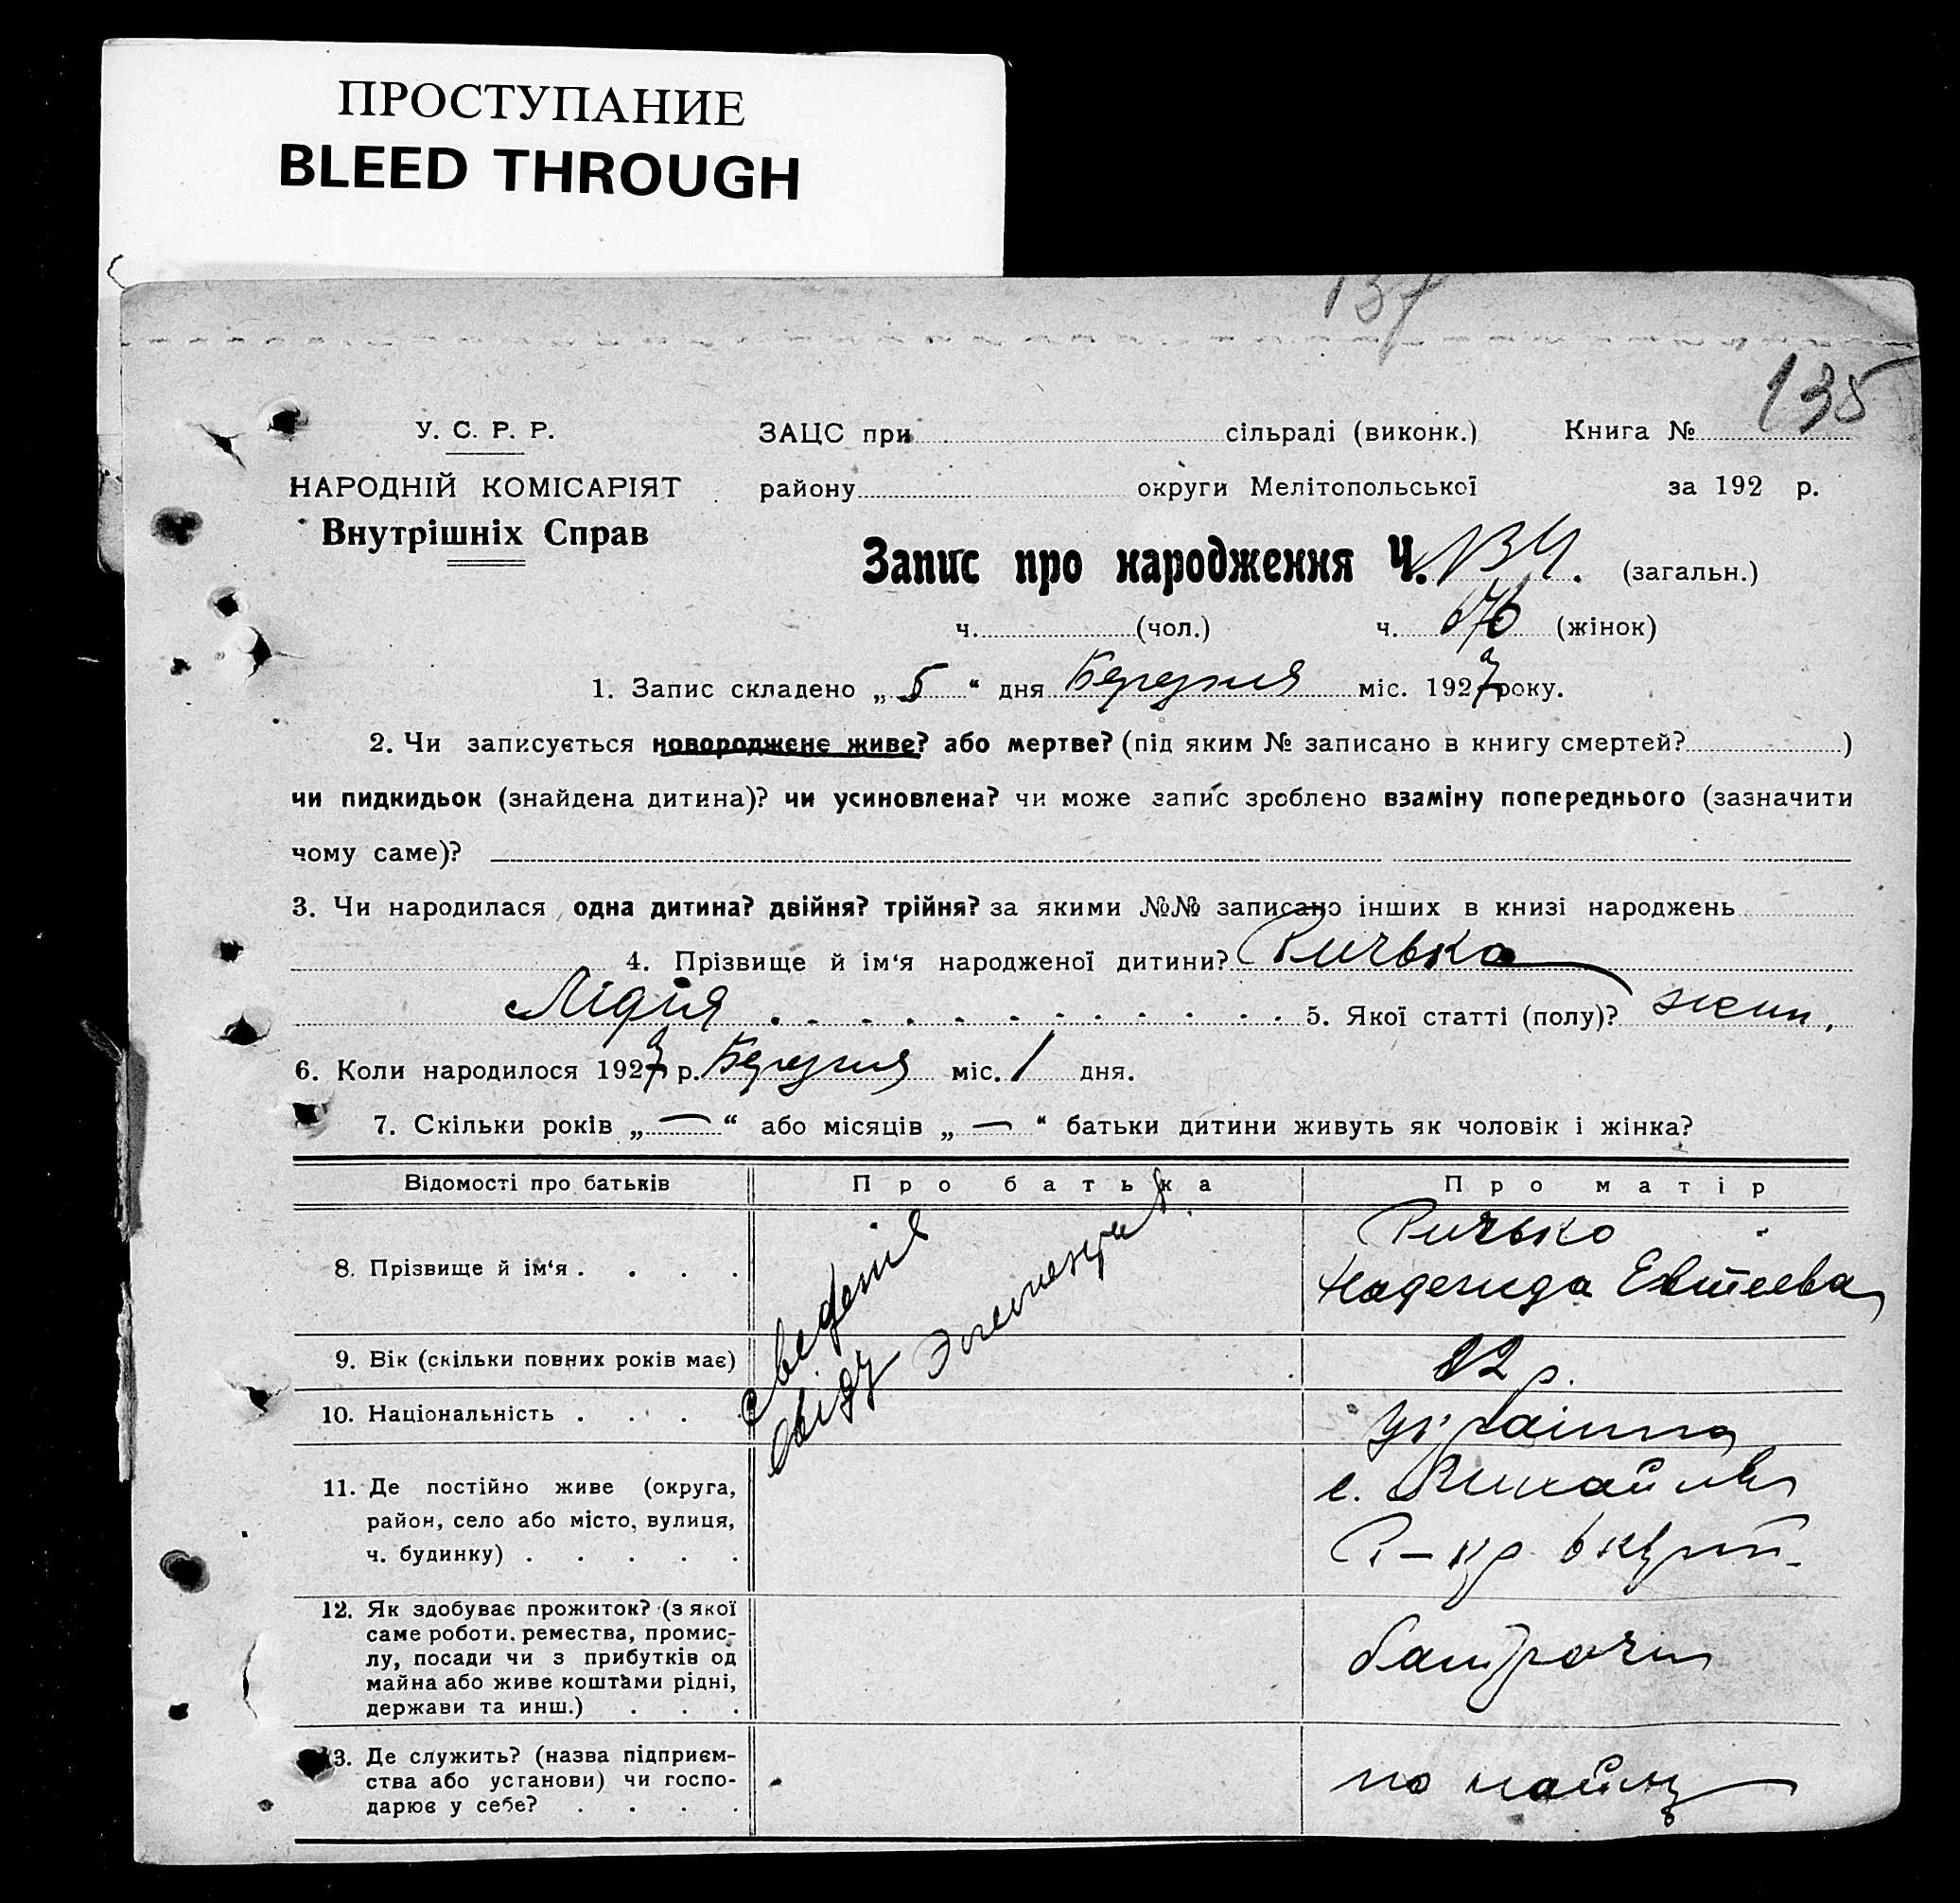 ПРОСТУПАНИЕ
BLEED THROUGH
137
135
У. С. Р. Р.
НАРОДНІЙ КОМІСАРІЯТ
Внутрішніх Справ
ЗАЦС при сільраді (виконк.) Книга №
району округи Мелітопольської за 192 р.
Запис про народження Ч. 134. (загальн.)
ч. (чол.) ч. 676 (жінок)
1. Запис складено „ 5 “ дня Березня міс. 1927 року.
2. Чи записується новороджене живе? або мертве? (під яким № записано в книгу смертей? )
чи пидкидьок (знайдена дитина)? чи усиновлена? чи може запис зроблено взаміну попереднього (зазначити
чому саме)?
3. Чи народилася одна дитина? двійня? трійня? за якими №№ записано інших в книзі народжень
4. Прізвище й ім‘я народженої дитини? Ричько
Лідія 5. Якої статті (полу)? жин.
6. Коли народилося 1927 р. Березня міс. 1 дня.
7. Скільки років „ — “ або місяців „ — “ батьки дитини живуть як чоловік і жінка?
Відомості про батьків Про батька Про матір
8. Прізвище й ім‘я . . . . Ричько
Надежда Евтеева
9. Вік (скільки повних років має) 22 р.
10. Національність . . . . україн
11. Де постійно живе (округа,
район, село або місто, вулиця,
ч. будинку) . . . . . с. Михайлів
12. Як здобуває прожиток? (з якої
саме роботи, ремества, промис-
лу, посади чи з прибутків од
майна або живе коштами рідні,
держави та инш.) . . . батрачи
13. Де служить? (назва підприєм-
ства або установи) чи госпо-
дарює у себе? . . . . по найму